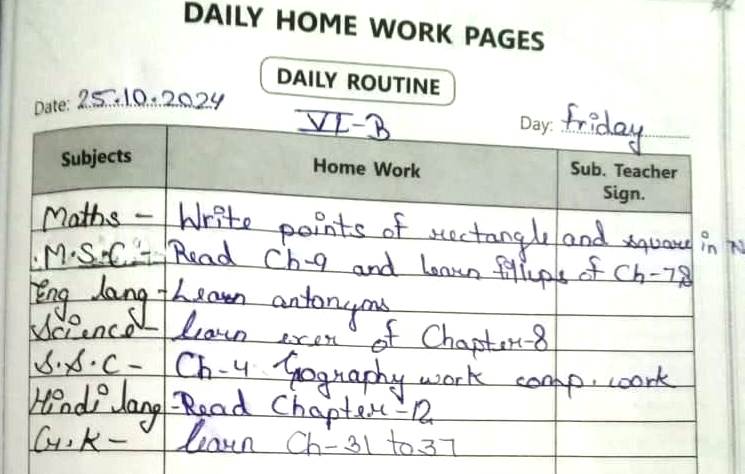 DAILY HOME WORK PAGES
DAILY ROUTINE
Date: 25.10.2024
VI-B
Day: friday
Subjects Home Work Sub. Teacher Sign.
Maths - Write points of rectangle and square in N
M.S.C. - Read Ch-9 and learn fillups of Ch-7,8
Eng lang - Learn antonyms
Science - learn exer of Chapter-8
S.S.C - Ch-4 Gography work comp. work
Hindi lang - Read Chapter-12
G.K - learn Ch-31 to 37